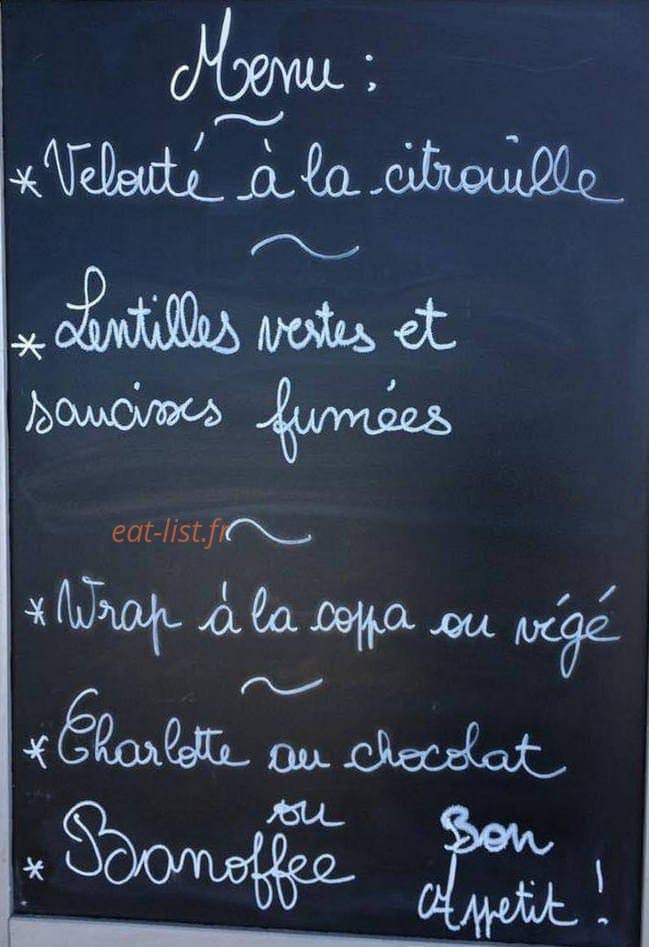 Menu :
* Velouté à la citrouille
~
* Lentilles vertes et
saucisses fumées
eat-list.fr ~
* Wrap à la coppa ou végé
~
* Charlotte au chocolat
ou
* Banoffee
Bon
Appetit !